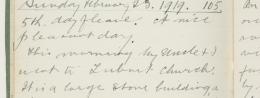 Sunday February 23. 1919. 105
5th day leave. A nice
pleasant day.
This morning my Uncle & I
went to church.
It is a large stone building a